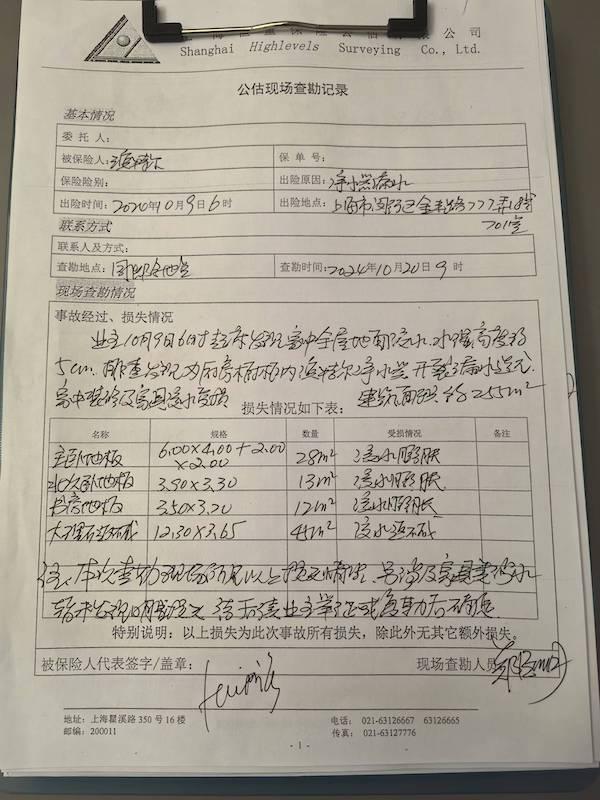 上海恒量保险公估有限公司
Shanghai Highlevels Surveying Co., Ltd.
公估现场查勘记录
基本情况
委托人：
被保险人： 保单号：
保险险别： 出险原因：净水器漏水
出险时间：2020年10月9日6时 出险地点：上海市闵行区金丰路777弄18号
701室
联系方式
联系人及方式：
查勘地点：同出险地点 查勘时间：2024年10月20日9时
现场查勘情况
事故经过、损失情况
业主10月9日6时起床发现家中全屋地面积水，水深高度约
5cm，排查发现为厨房橱柜内滨特尔净水器开裂漏水造成
家中装修及家具浸水受损 建筑面积约255m²
损失情况如下表：
名称 规格 数量 受损情况 备注
主卧地板 6.00×4.00+2.00×2.00 28m² 浸水膨胀
北次卧地板 3.90×3.30 13m² 浸水膨胀
书房地板 3.50×3.20 12m² 浸水膨胀
大理石泛碱 12.30×3.65 45m² 浸水泛碱
注：本次查勘现场所见以上损失情况，另涉及家具类浸水
暂未发现明显损失，待后续业主举证或复勘后确定
特别说明：以上损失为此次事故所有损失，除此外无其它额外损失。
被保险人代表签字/盖章： 现场查勘人员：
地址：上海瞿溪路350号16楼 电话： 021-63126667 63126665
邮编：200011 传真： 021-63127776
- 1 -